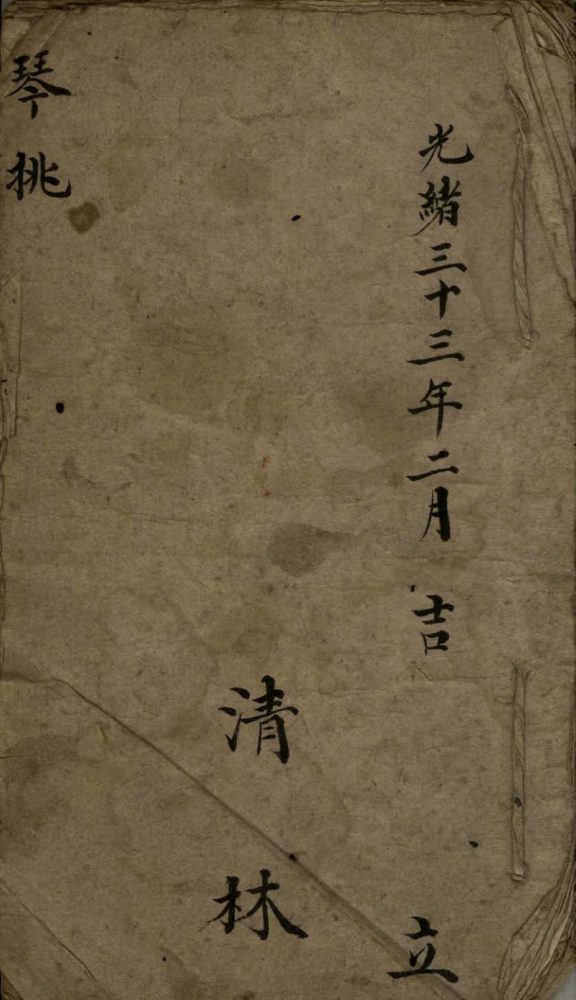 光緒三十三年二月 吉立
清林
琴挑